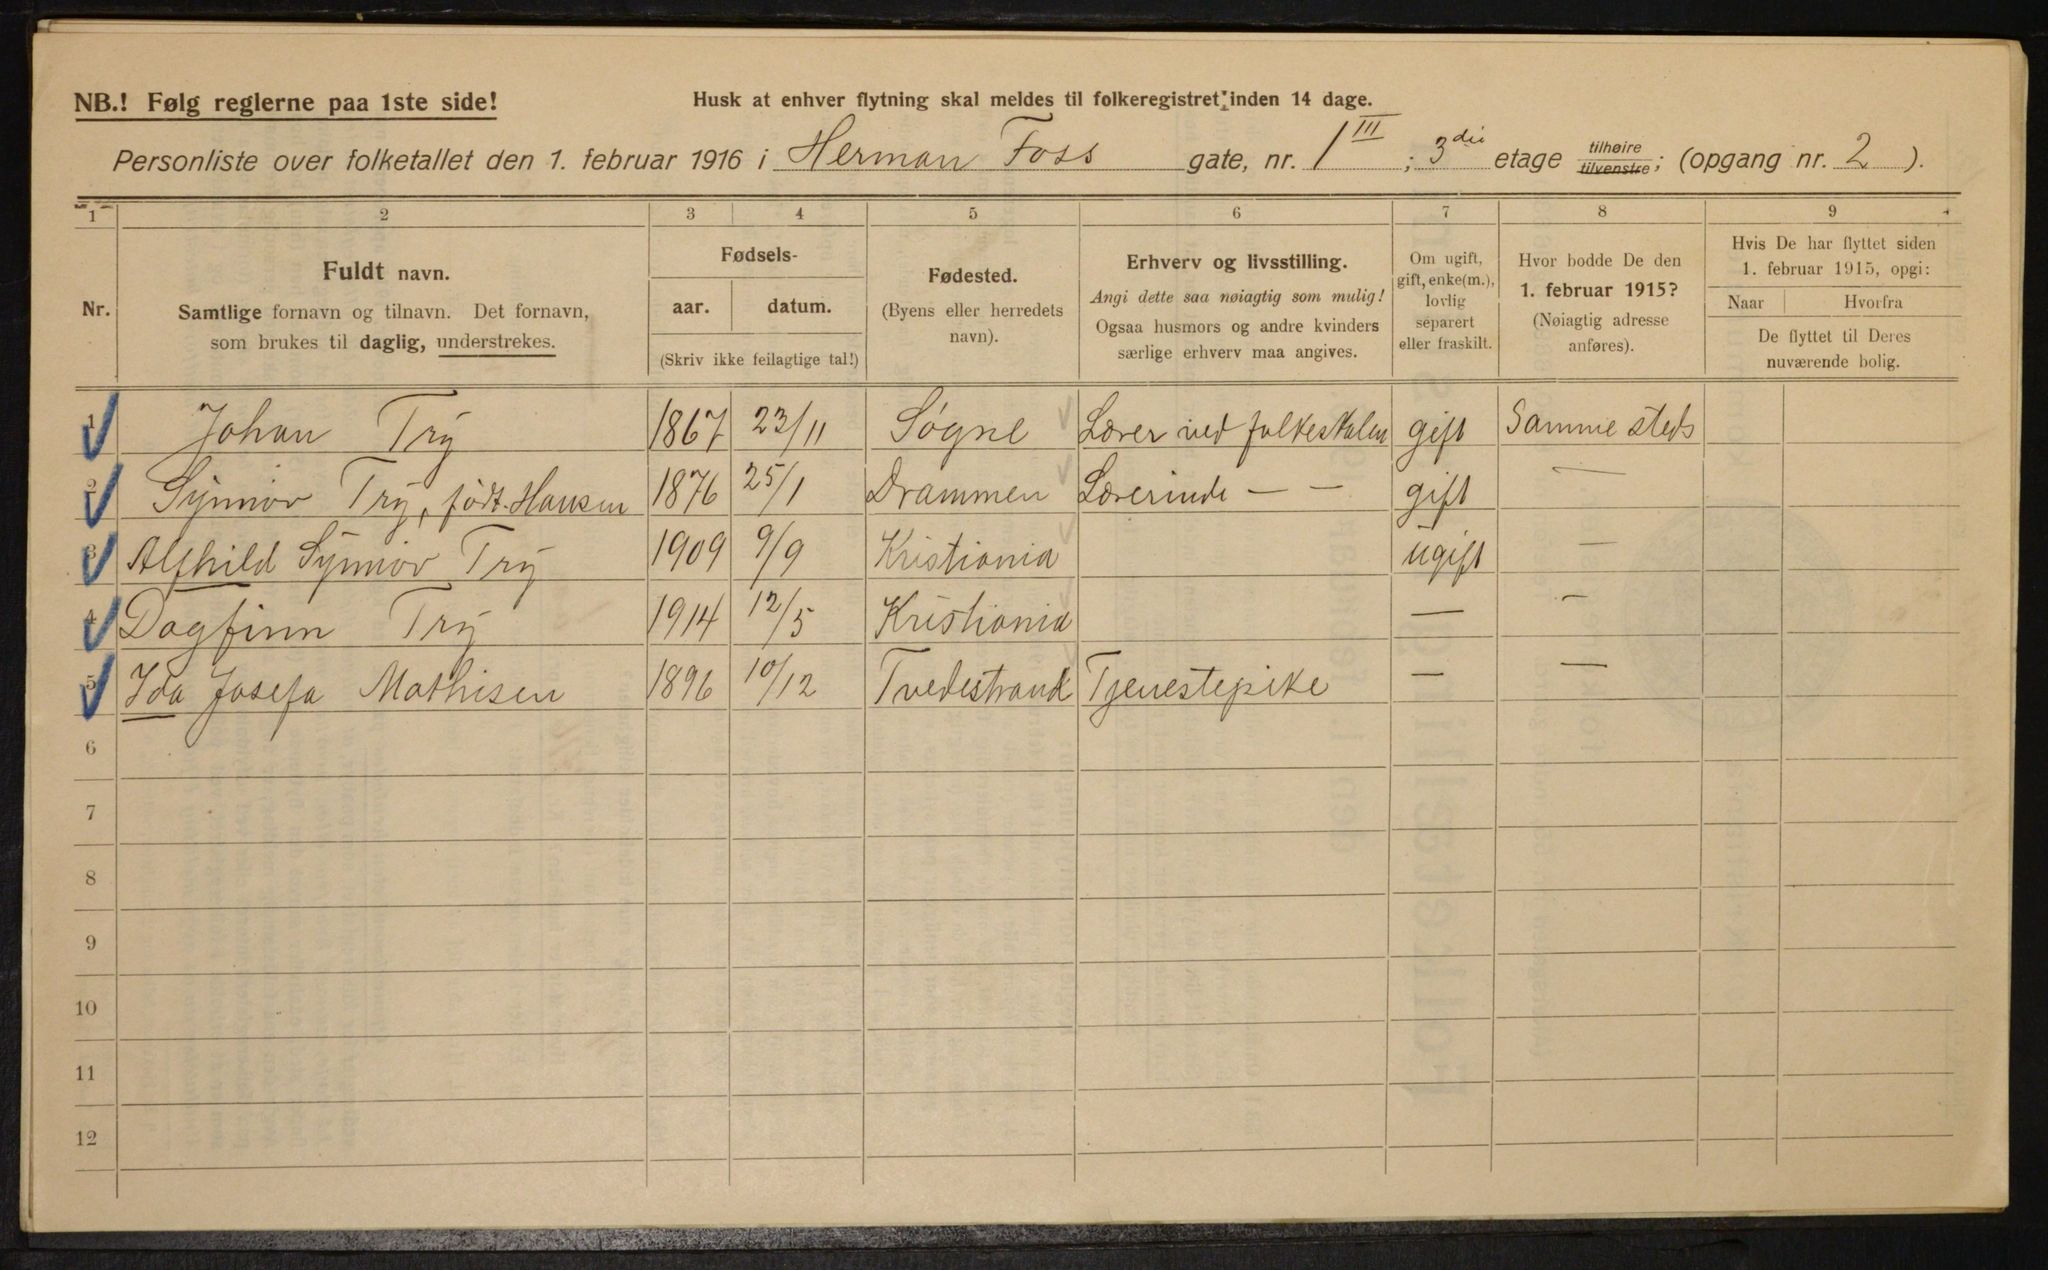 NB.! Følg reglerne paa 1ste side! Husk at enhver flytning skal meldes til folkeregistret inden 14 dage.
Personliste over folketallet den 1. februar 1916 i Herman Foss gate, nr. 1 III ; 3die etage tilhøire tilvenstre ; (opgang nr. 2 ).
1 2 3 4 5 6 7 8 9
Nr. Fuldt navn. Samtlige fornavn og tilnavn. Det fornavn, som brukes til daglig, understrekes.
Fødsels- aar. datum. (Skriv ikke feilagtige tal!)
Fødested. (Byens eller herredets navn).
Erhverv og livsstilling. Angi dette saa nøiagtig som mulig! Ogsaa husmors og andre kvinders særlige erhverv maa angives.
Om ugift, gift, enke(m.), lovlig separert eller fraskilt.
Hvor bodde De den 1. februar 1915? (Nøiagtig adresse anføres).
Hvis De har flyttet siden 1. februar 1915, opgi: Naar Hvorfra De flyttet til Deres nuværende bolig.
1 Johan Trÿ 1867 23/11 Søgne Lærer ved folkeskolen gift Samme steds
2 Sÿnnøv Trÿ, født Hansen 1876 25/1 Drammen Lærerinde — — gift —
3 Alfhild Sÿnnøv Trÿ 1909 9/9 Kristiania ugift —
4 Dagfinn Trÿ 1914 12/5 Kristiania — —
5 Ida Josefa Mathisen 1896 10/12 Tvedestrand Tjenestepike — —
6
7
8
9
10
11
12